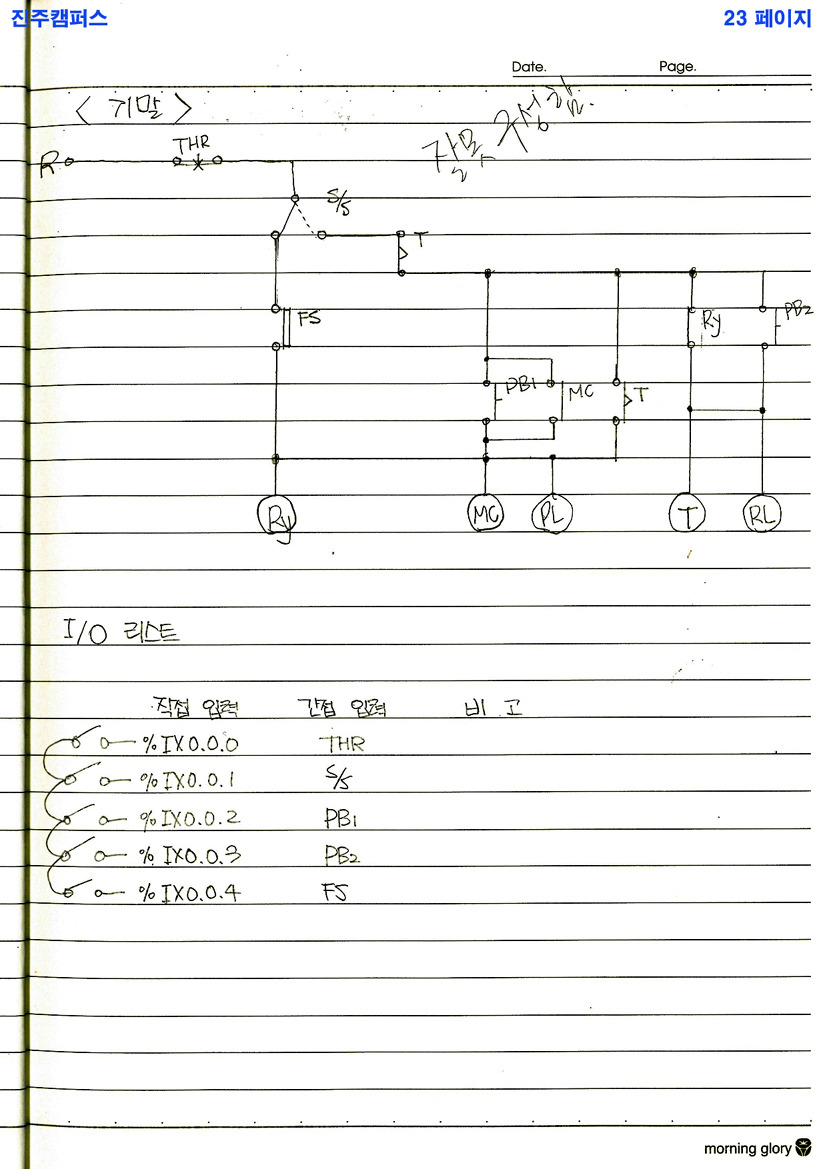 진주캠퍼스 23 페이지
Date. Page.
< 기말 >
잘못 구성함.
R THR
S/S
T
FS Ry PB2
PB1 MC T
Ry MC PL T RL
I/O 리스트
직접 입력 간접 입력 비고
%IX0.0.0 THR
%IX0.0.1 S/S
%IX0.0.2 PB1
%IX0.0.3 PB2
%IX0.0.4 FS
morning glory